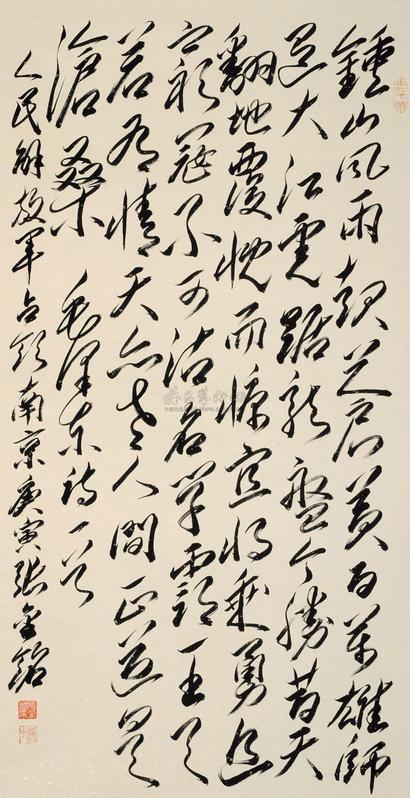 鍾山風雨起蒼黃百萬雄師
過大江虎踞龍盤今勝昔天
翻地覆慨而慷宜將剩勇追
窮寇不可沽名學霸王天
若有情天亦老人間正道是
滄桑 毛澤東詩一首
人民解放軍占領南京庚寅張銘